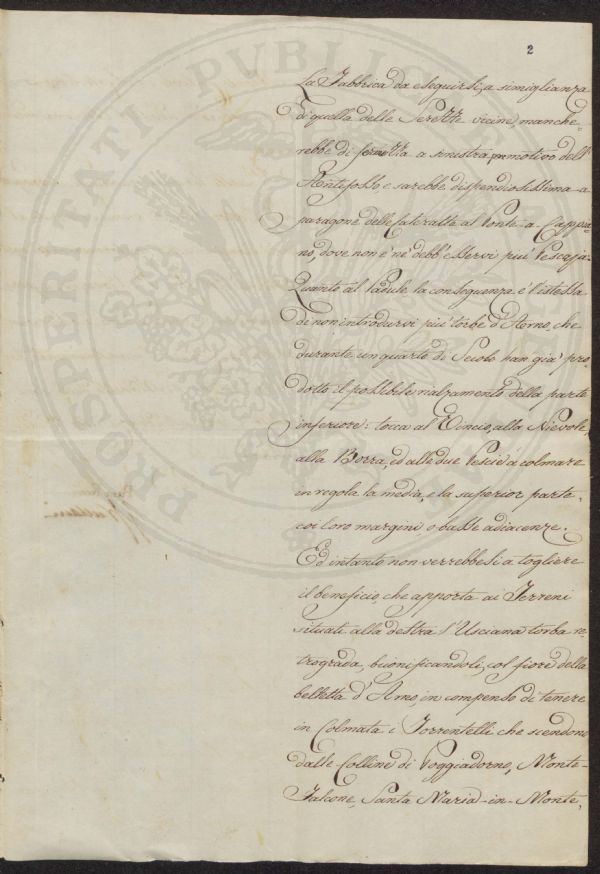 2
La Fabbrica da eseguirsi, a simiglianza
di quella delle Serezze vicine, manche-
rebbe di fermezza a sinistra per motivo dell'
Antifosso e sarebbe dispendiosissima a
paragone delle Cateratte al Ponte-a-Cappia-
no, dove non è nè debb'esservi più Pescaja.
Quanto al Padule la conseguenza è l'istessa
di non introdurvi più torbe d'Arno, che
durante un quarto di Secolo han già pro-
dotto il possibile rialzamento della parte
inferiore: tocca al Vincio, alla Nievole,
alla Borra, ed alle due Pescie a colmare
in regola la media, e la superior parte
coi loro margini o basse adiacenze.
Ed intanto non verrebbesi a togliere
il beneficio, che apporta ai Terreni
situati alla destra l'Usciana torba re-
trograda, buonificandoli, col fiore della
belletta d'Arno, in compenso di tenere
in Colmata i Torrentelli che scendono
dalle Colline di Poggiadorno, Monte-
Falcone, Santa Maria-in-Monte,
PROSPERITATI PVBLIC